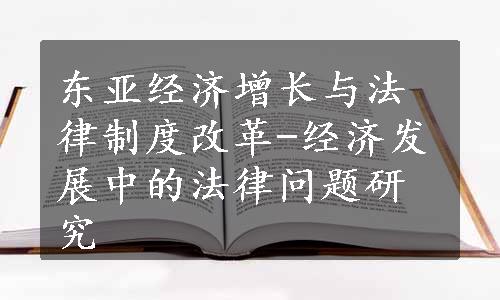 东亚经济增长与法
律制度改革-经济发
展中的法律问题研
究